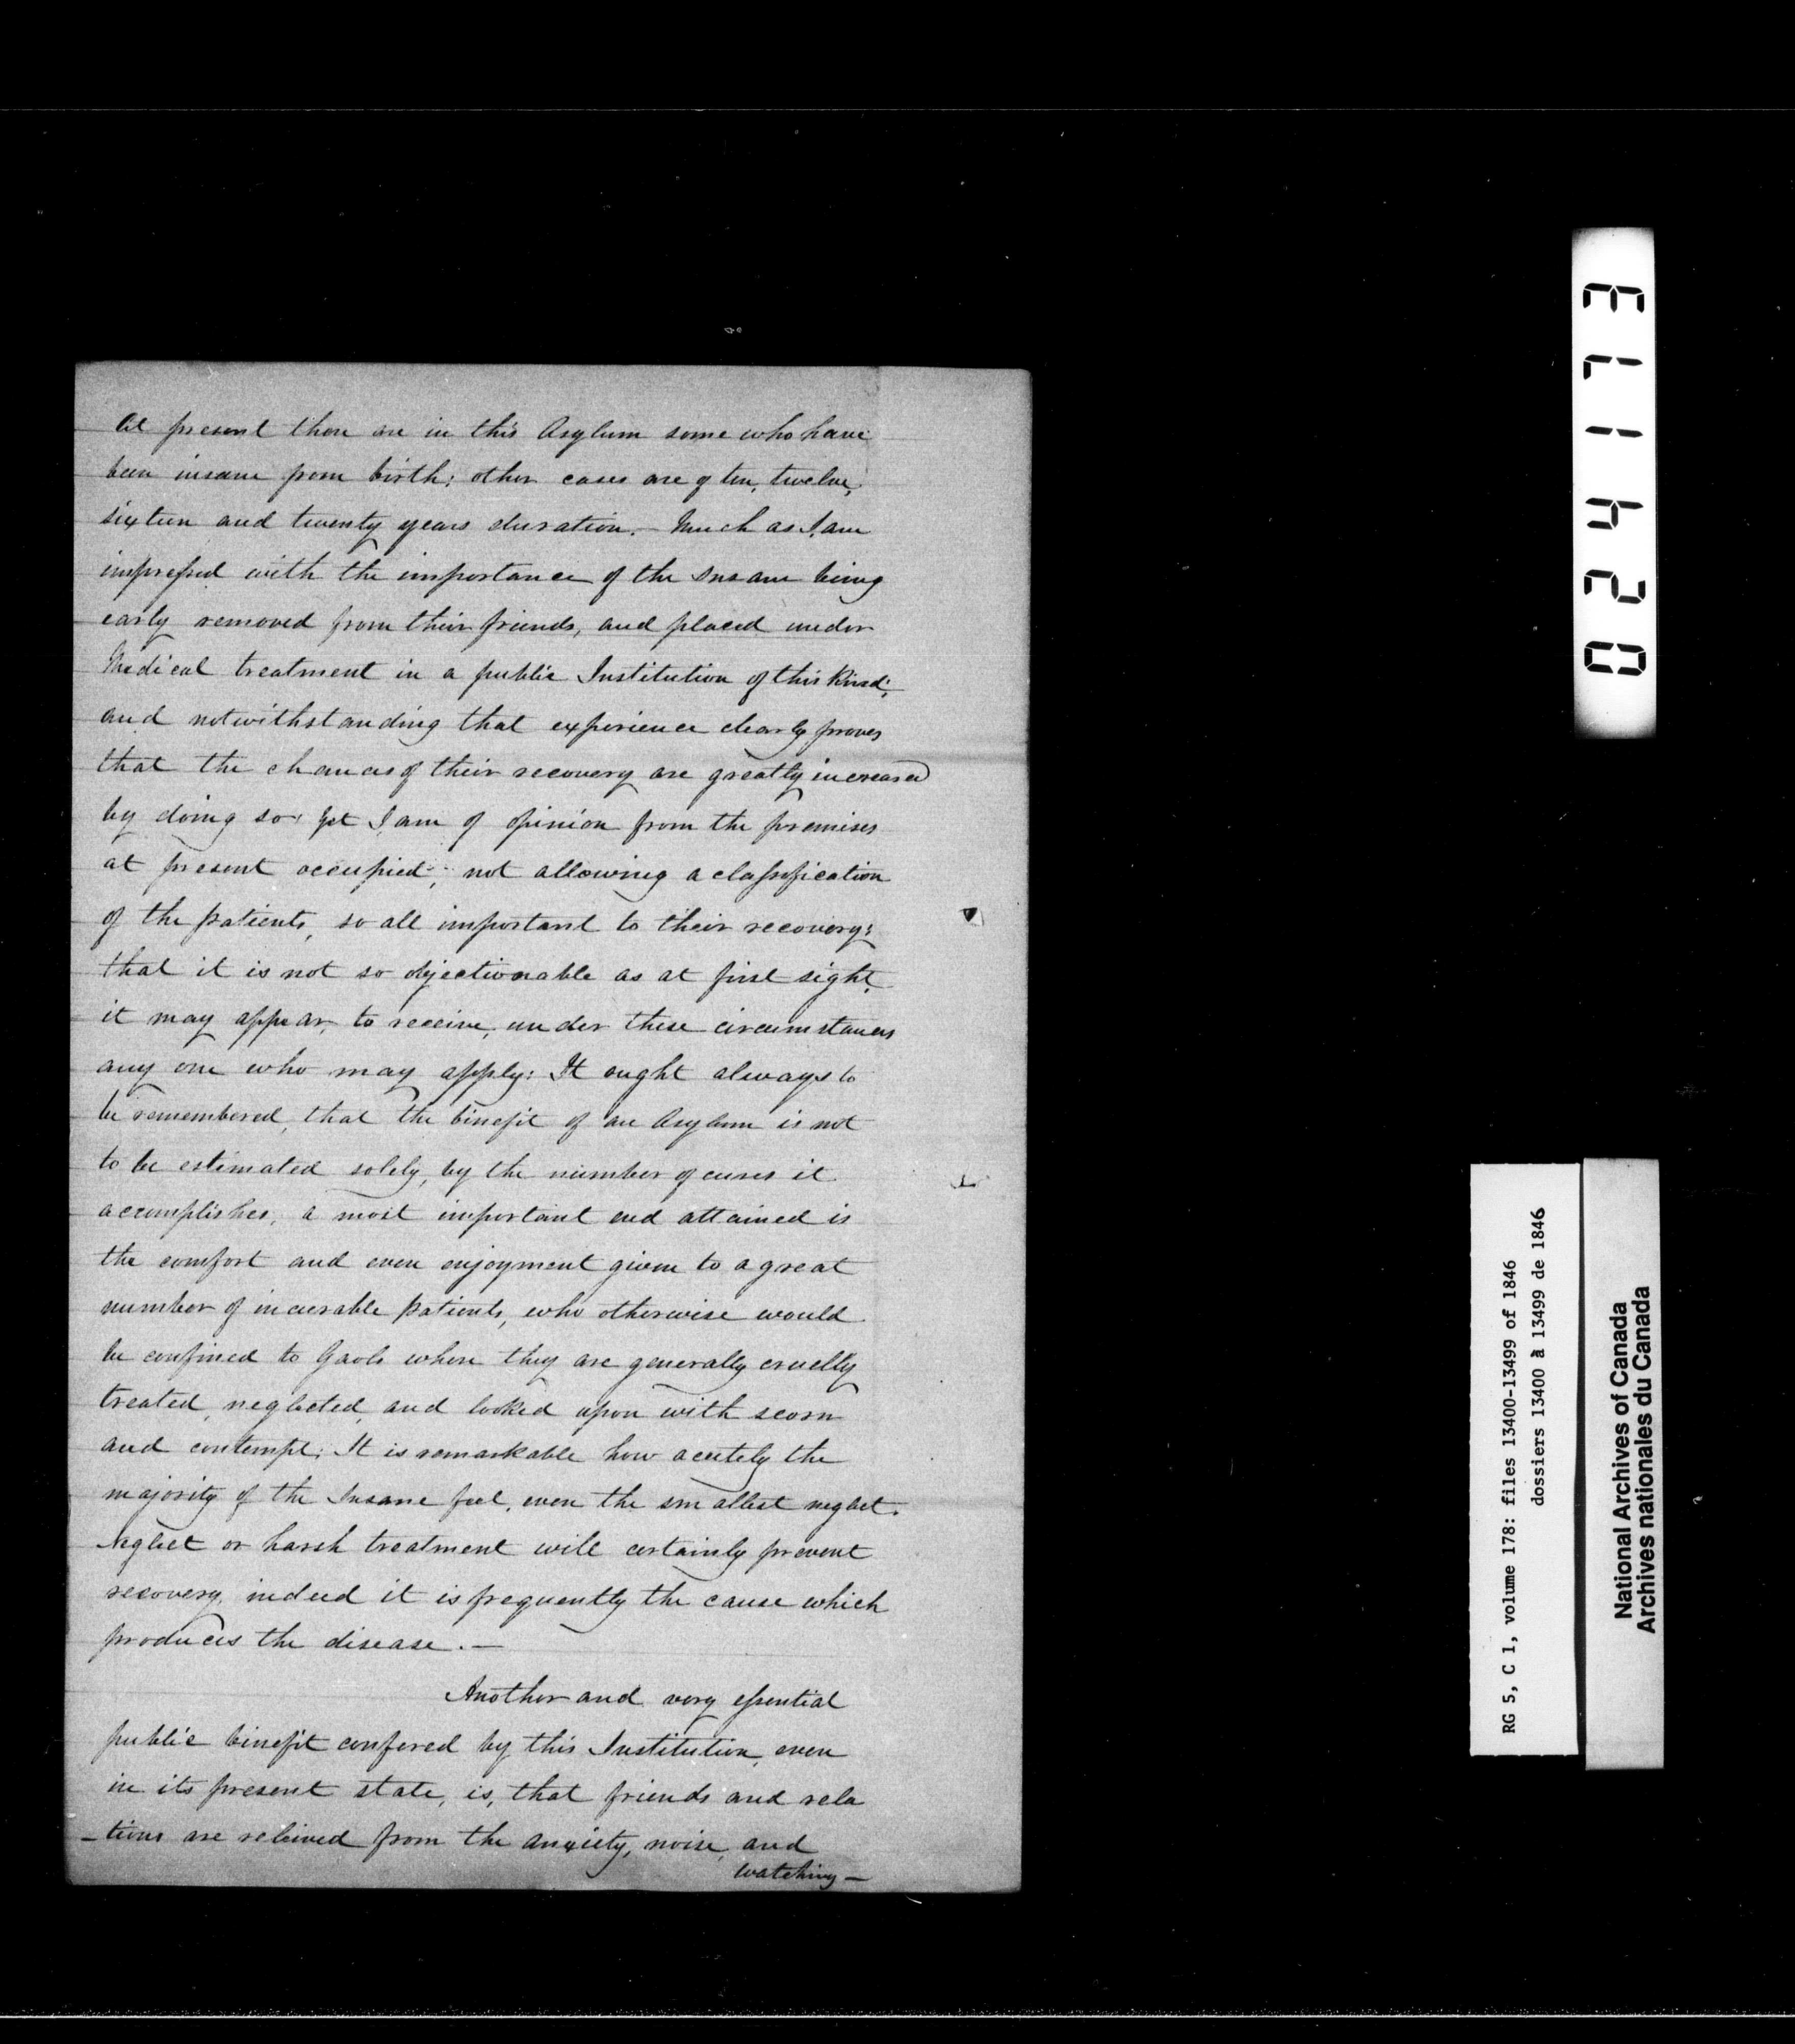 At present there are in this Asylum some who have
been insane from birth; other cases are of ten, twelve,
sixteen and twenty years duration. - Much as I am
impressed with the importance of the Insane being
early removed from their friends, and placed under
Medical treatment in a public Institution of this kind;
and notwithstanding that experience clearly proves
that the chances of their recovery are greatly increased
by doing so; yet I am of opinion from the premises
at present occupied, not allowing a classification
of the patients, so all important to their recovery;
that it is not so objectionable as at first sight,
it may appear, to receive, under these circumstances
any one who may apply: It ought always to
be remembered, that the binefit of an Asylum is not
to be estimated solely, by the number of cures it
accomplishes, a most important end attained is
the comfort and even enjoyment given to a great
number of incurable patients, who otherwise would
be confined to Gaols where they are generally cruelly
treated, neglected, and looked upon with scorn
and contempt; It is remarkable how acutely the
majority of the Insane feel, even the smallest neglect.
Neglect or harsh treatment will certainly prevent
recovery, indeed it is frequently the cause which
produces the disease. —
Another and very essential
public binefit confered by this Institution, even
in its present state, is, that friends and rela
-tions are releived from the anxiety, noise, and
watching —
024113
RG 5, C 1, volume 178: files 13400-13499 of 1846
dossiers 13400 à 13499 de 1846
National Archives of Canada
Archives nationales du Canada